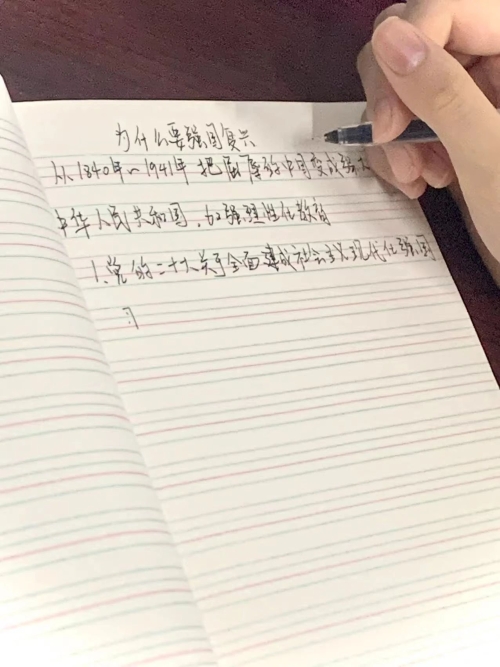 为什么要强国复兴
从1840年～1941年 把屈辱的中国变成强大
中华人民共和国，加强理性化教育
1、党的二十大关于全面建成社会主义现代化强国